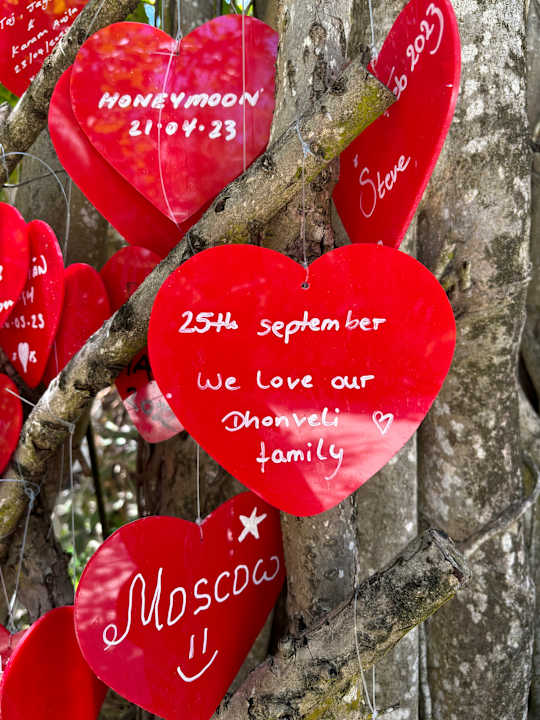 HONEYMOON
21.04.23
2023
Steve
25th september
We love our
Dhonveli
family
MOSCOW